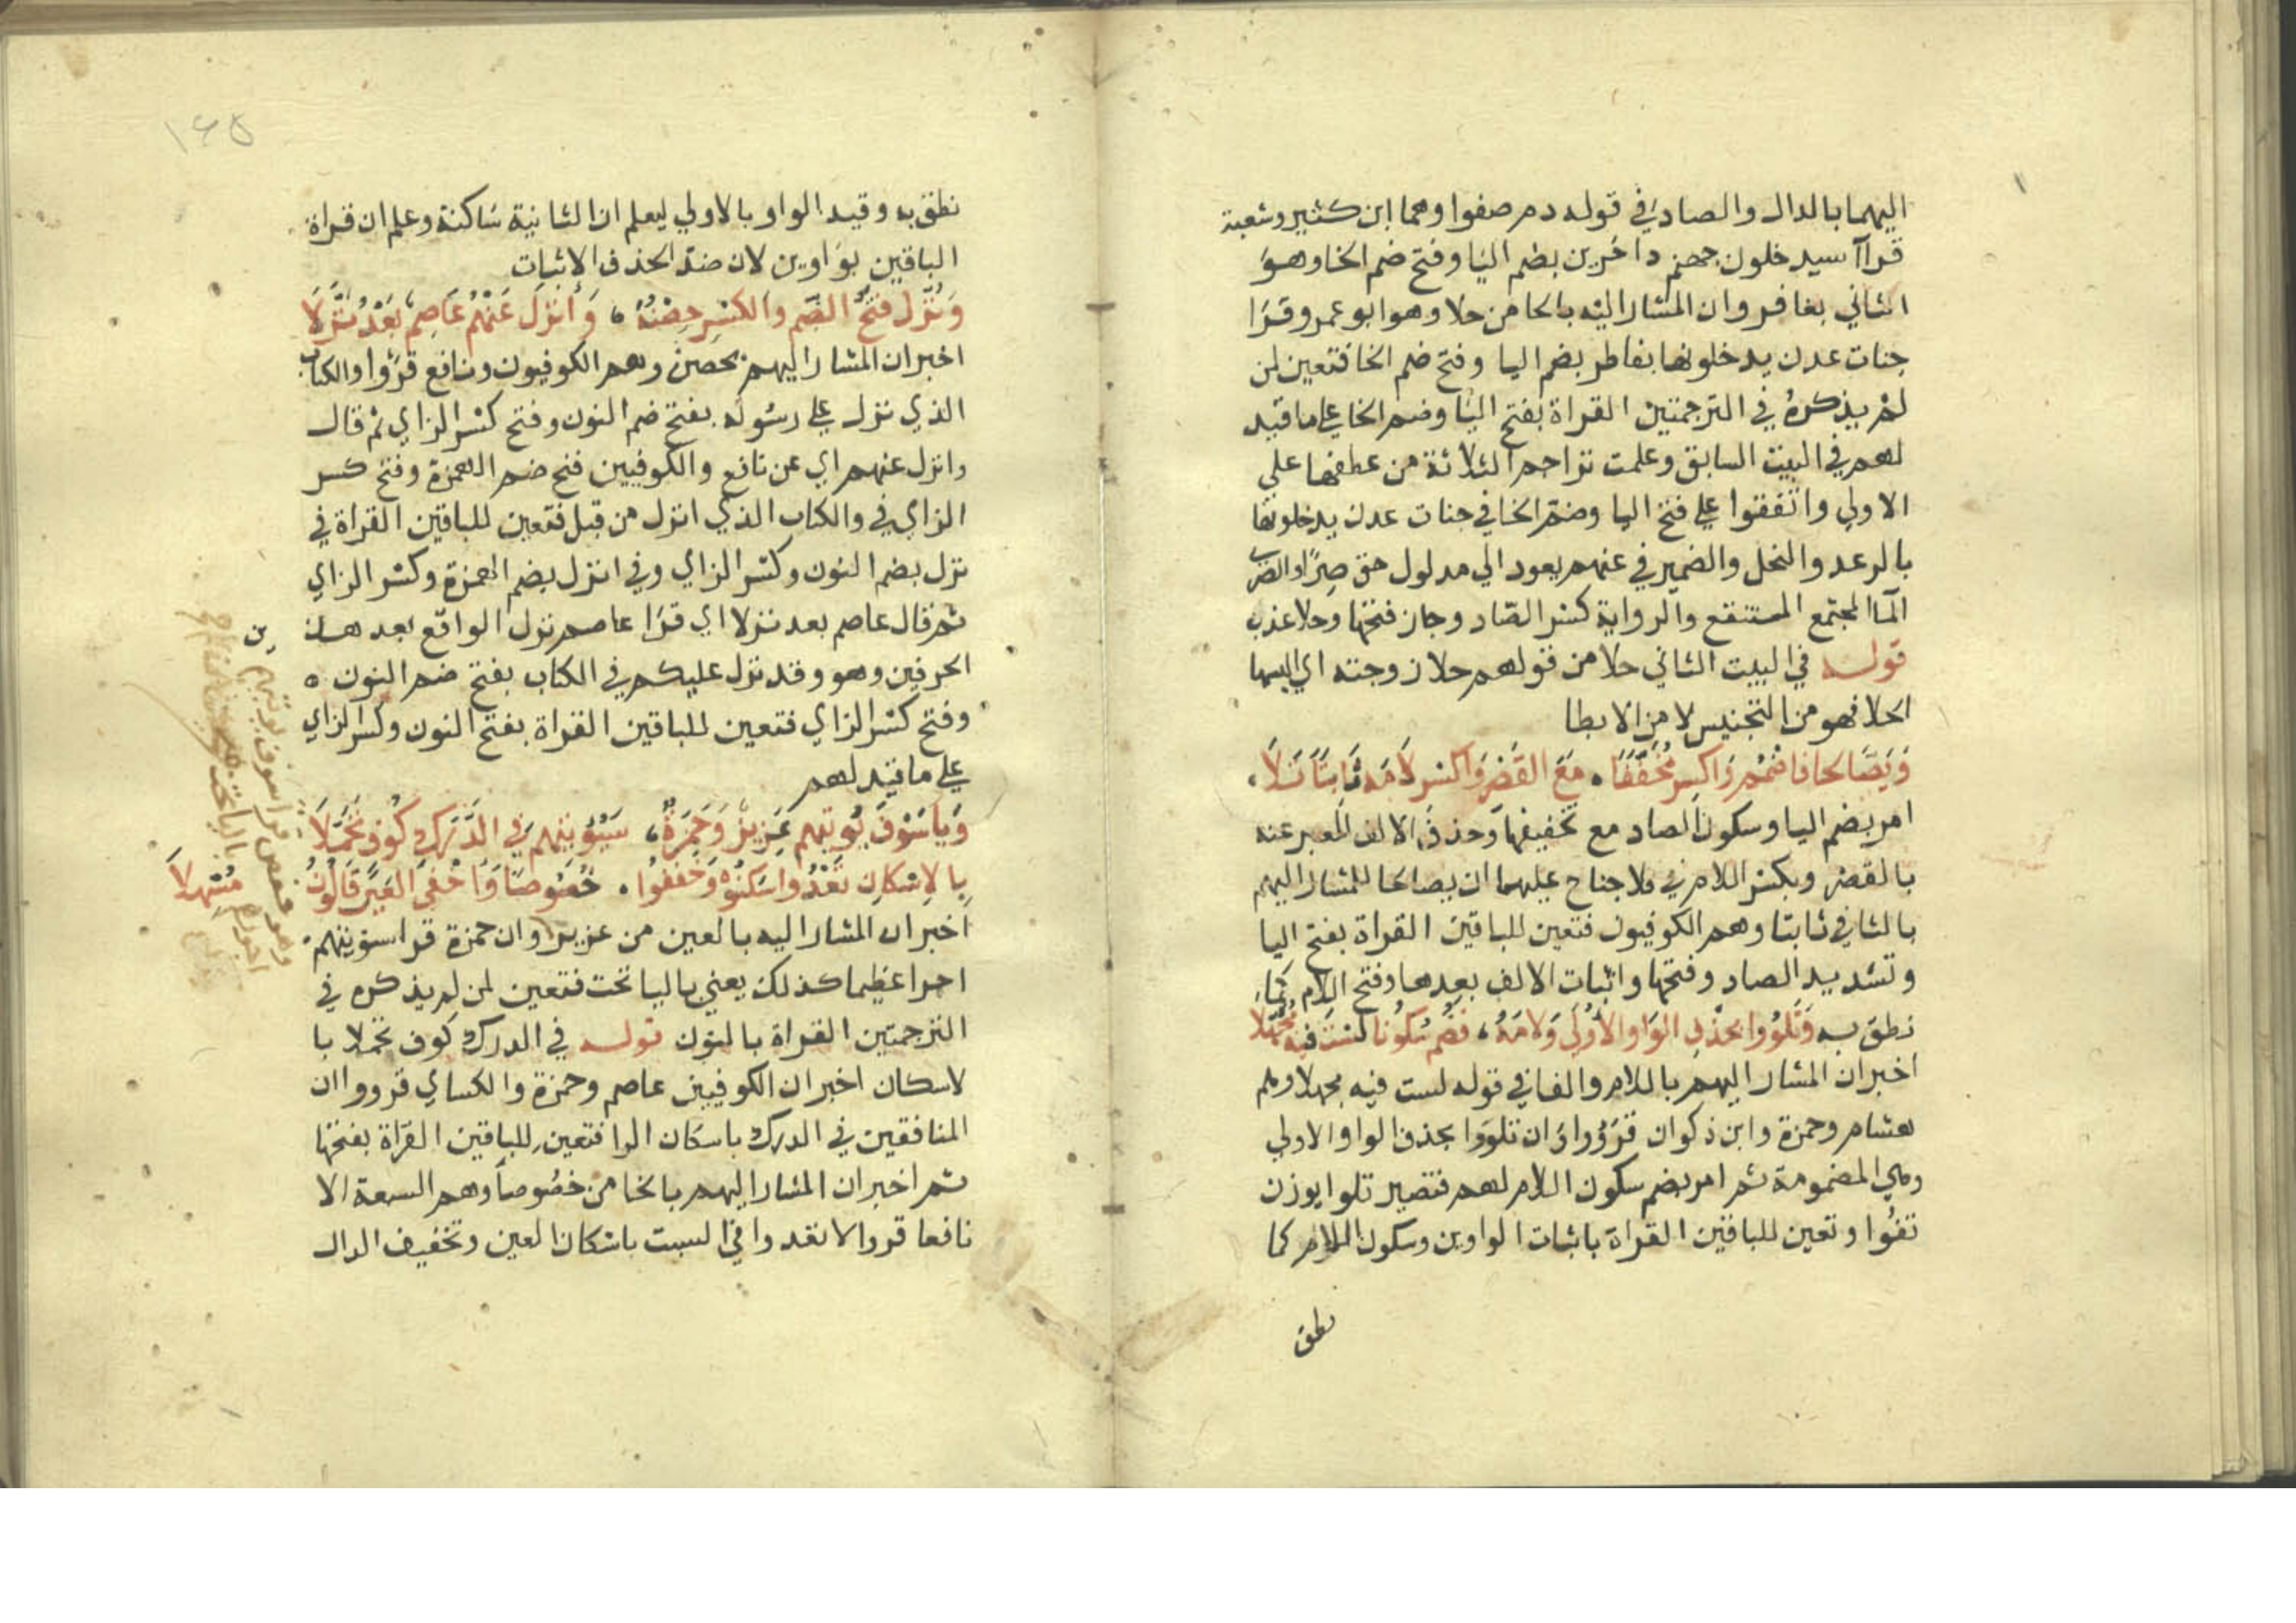 اليهما بالدال والصاد في قوله دم صفوا وهما ابن كثير وشعبة
قرآ سيدخلون جهنم داخرين بضم اليا وفتح ضم الخا وهو
الثاني بغافر وان المشار اليه بالحا من حلا وهو ابو عمرو قرا
جنات عدن يدخلونها بفاطر بضم اليا وفتح ضم الخا فتعين لمن
لم يذكره في الترجمتين القراة بفتح اليا وضم الخا على ما قيد
لهم في البيت السابق وعلمت تراجم الثلاثة من عطفها على
الاولى واتفقوا على فتح اليا وضم الخا في جنات عدن يدخلونها
بالرعد والنحل والضمير في عنهم يعود الي مدلول حق صرا والصرى
الما المجتمع المستنقع والرواية كسر الصاد وجاز فتحها وحلا عذب
قوله في البيت الثاني حلا من قولهم حلا زوجته اي البسها
الحلا فهو من التجنيس لا من الايطا
وَيَصَّالحا فاضمم واكسر مخففا ٥ مع القصر واكسر لامه ثابتا تلا
امر بضم اليا وسكون الصاد مع تخفيفها وحذف الالف المعبر عنه
بالقصر وبكسر اللام في فلا جناح عليهما ان يصالحا للمشار اليهم
بالثا في ثابتا وهم الكوفيون فتعين للباقين القراة بفتح اليا
وتشديد الصاد وفتحها واثبات الالف بعدها وفتح اللام كما
نطق به وتلووا بحذف الواو الاولى ولامه ، فضم سكونا لست فيه مجهلا
اخبر ان المشار اليهم باللام والفا في قوله لست فيه مجهلا وهم
هشام وحمزة وابن ذكوان قرؤوا وان تلووا بحذف الواو الاولي
وهي المضمومة ثم امر بضم سكون اللام لهم فتصير تلوا بوزن
تفوا وتعين للباقين القراة باثبات الواوين وسكون اللام كما
نطق
١٤٥
نطق به وقيد الواو بالاولي ليعلم ان الثانية ساكنة وعلم ان قراة
الباقين بواوين لان ضد الحذف الاثبات
وَنُزِّل فتح الضم والكسر حصنه ، وَأنزل عنهم عاصم بعد نزلا
اخبر ان المشار اليهم بحصن وهم الكوفيون ونافع قرؤا والكتاب
الذي نزل على رسوله بفتح ضم النون وفتح كسر الزاي ثم قال
وانزل عنهم اي عن نافع والكوفيين فتح ضم الهمزة وفتح كسر
الزاي في والكتاب الذي انزل من قبل فتعين للباقين القراة في
نزل بضم النون وكسر الزاي وفي انزل بضم الهمزة وكسر الزاي
ثم قال عاصم بعد نزلا اي قرا عاصم نزل الواقع بعد هذين
الحرفين وهو وقد نزل عليكم في الكتاب بفتح ضم النون ٥
وفتح كسر الزاي فتعين للباقين القراة بفتح النون وكسر الزاي
على ما قيد لهم
وَيا سَوْفَ يُوتيهم عَزيز وَحمزة ، سيؤتيهم في الدرك كوف تحملا
بالاسكان تعدوا سكنوه وخففوا . خصوصا واخفى العين قالون مسهلا
اخبر ان المشار اليه بالعين من عزيز وان حمزة قرا سنؤتيهم
اجرا عظيما كذلك يعني باليا تحت فتعين لمن لم يذكره في
الترجمتين القراة بالنون قوله في الدرك كوف تحملا با
لاسكان اخبر ان الكوفيين عاصم وحمزة والكساي قرووا ان
المنافقين في الدرك باسكان الرا فتعين للباقين القراة بفتحها
ثم اخبر ان المشار اليهم بالخا من خصوصا وهم السبعة الا
نافعا قروا لا تعدوا في السبت باسكان العين وتخفيف الدال
وهو حفص قرا سوف يوتيهم
اجورهم بالياء تحت